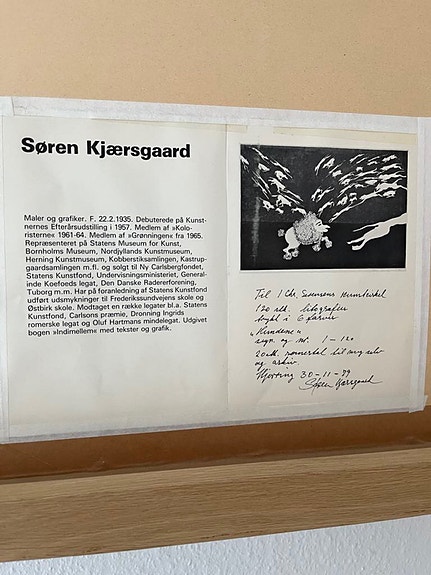 Søren Kjærsgaard
Maler og grafiker. F. 22.2.1935. Debuterede på Kunst-
nernes Efterårsudstilling i 1957. Medlem af »Kolo-
risterne« 1961-64. Medlem af »Grønningen« fra 1965.
Repræsenteret på Statens Museum for Kunst,
Bornholms Museum, Nordjyllands Kunstmuseum,
Herning Kunstmuseum, Kobberstiksamlingen, Kastrup-
gaardsamlingen m.fl. og solgt til Ny Carlsbergfondet,
Statens Kunstfond, Undervisningsministeriet, General-
inde Koefoeds legat, Den Danske Radererforening,
Tuborg m.m. Har på foranledning af Statens Kunstfond
udført udsmykninger til Frederikssundvejens skole og
Østbirk skole. Modtaget en række legater bl.a. Statens
Kunstfond, Carlsons præmie, Dronning Ingrids
romerske legat og Oluf Hartmans mindelegat. Udgivet
bogen »Indimellem« med tekster og grafik.
Til I Chr. Sørensens
120 stk. litografier
trykt i 6 farver
"Hundene"
sign. og nr. 1 - 120
20 stk. nummeret til mig selv
og arkiv.
Hjørring 30-11-89
Søren Kjærsgaard